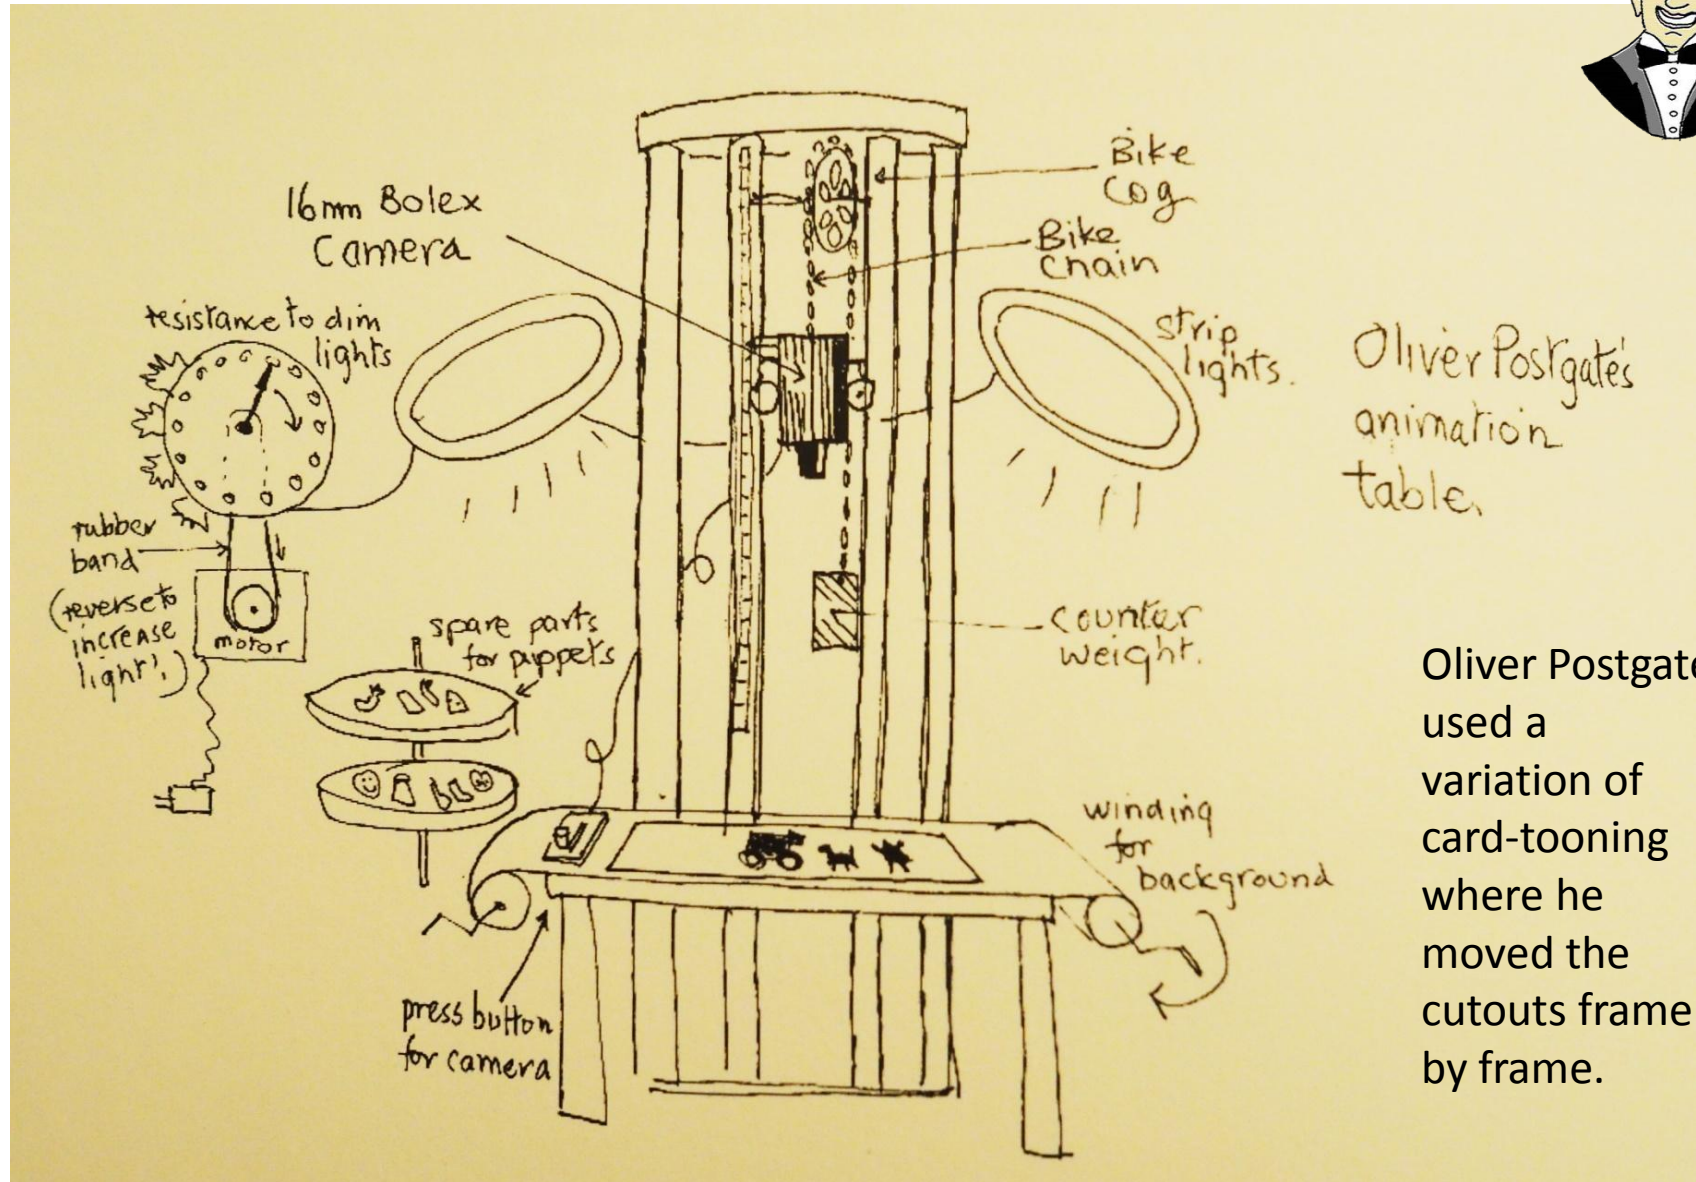 16mm Bolex
Camera
Bike
Cog
Bike
chain
resistance to dim
lights
strip
lights.
Oliver Postgate's
animation
table.
rubber
band
(reverse to
increase
light!)
motor
spare parts
for puppets
counter
weight.
winding
for
background
press button
for camera
Oliver Postgate
used a
variation of
card-tooning
where he
moved the
cutouts frame
by frame.